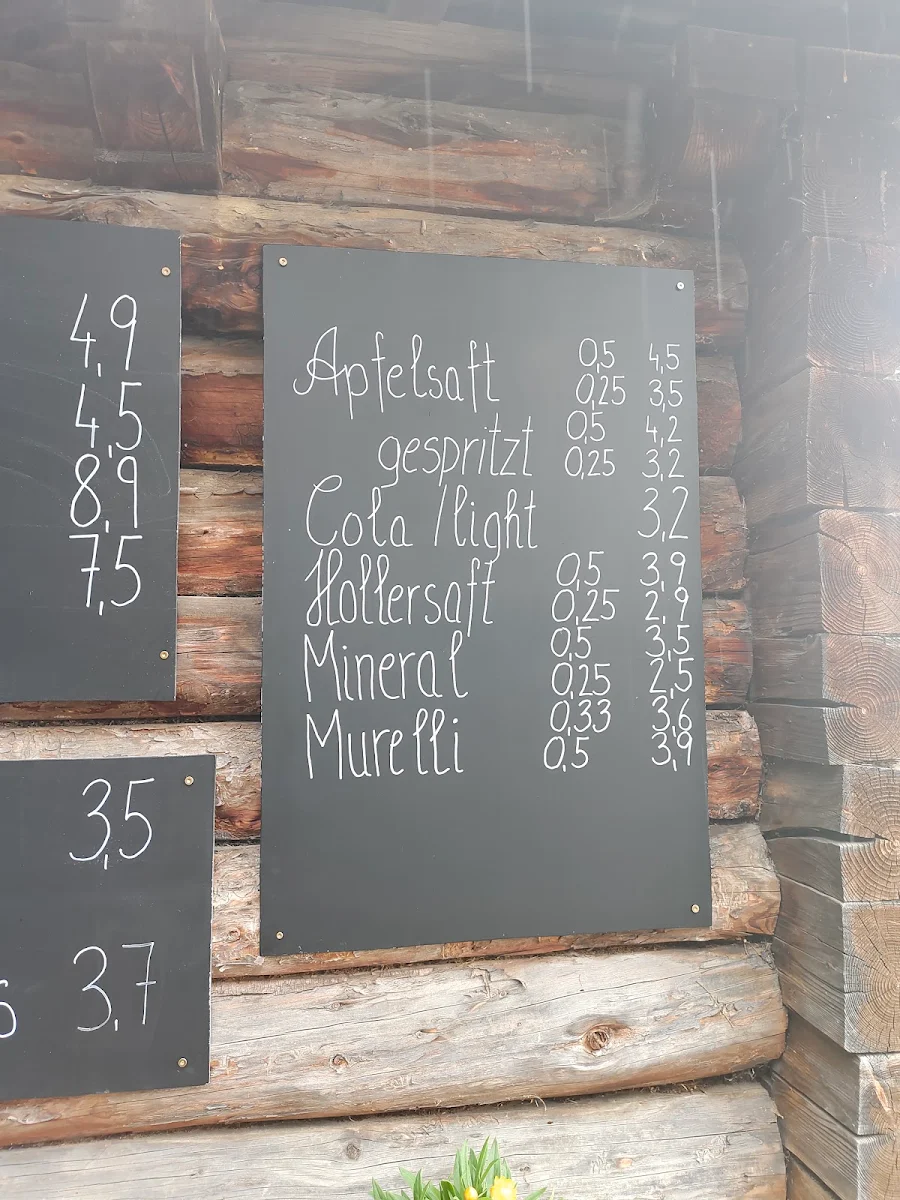 4,9
4,5
8,9
7,5
3,5
3,7
Apfelsaft 0,5 4,5
0,25 3,5
gespritzt 0,5 4,2
0,25 3,2
Cola /light 3,2
Hollersaft 0,5 3,9
0,25 2,9
Mineral 0,5 3,5
0,25 2,5
Murelli 0,33 3,6
0,5 3,9